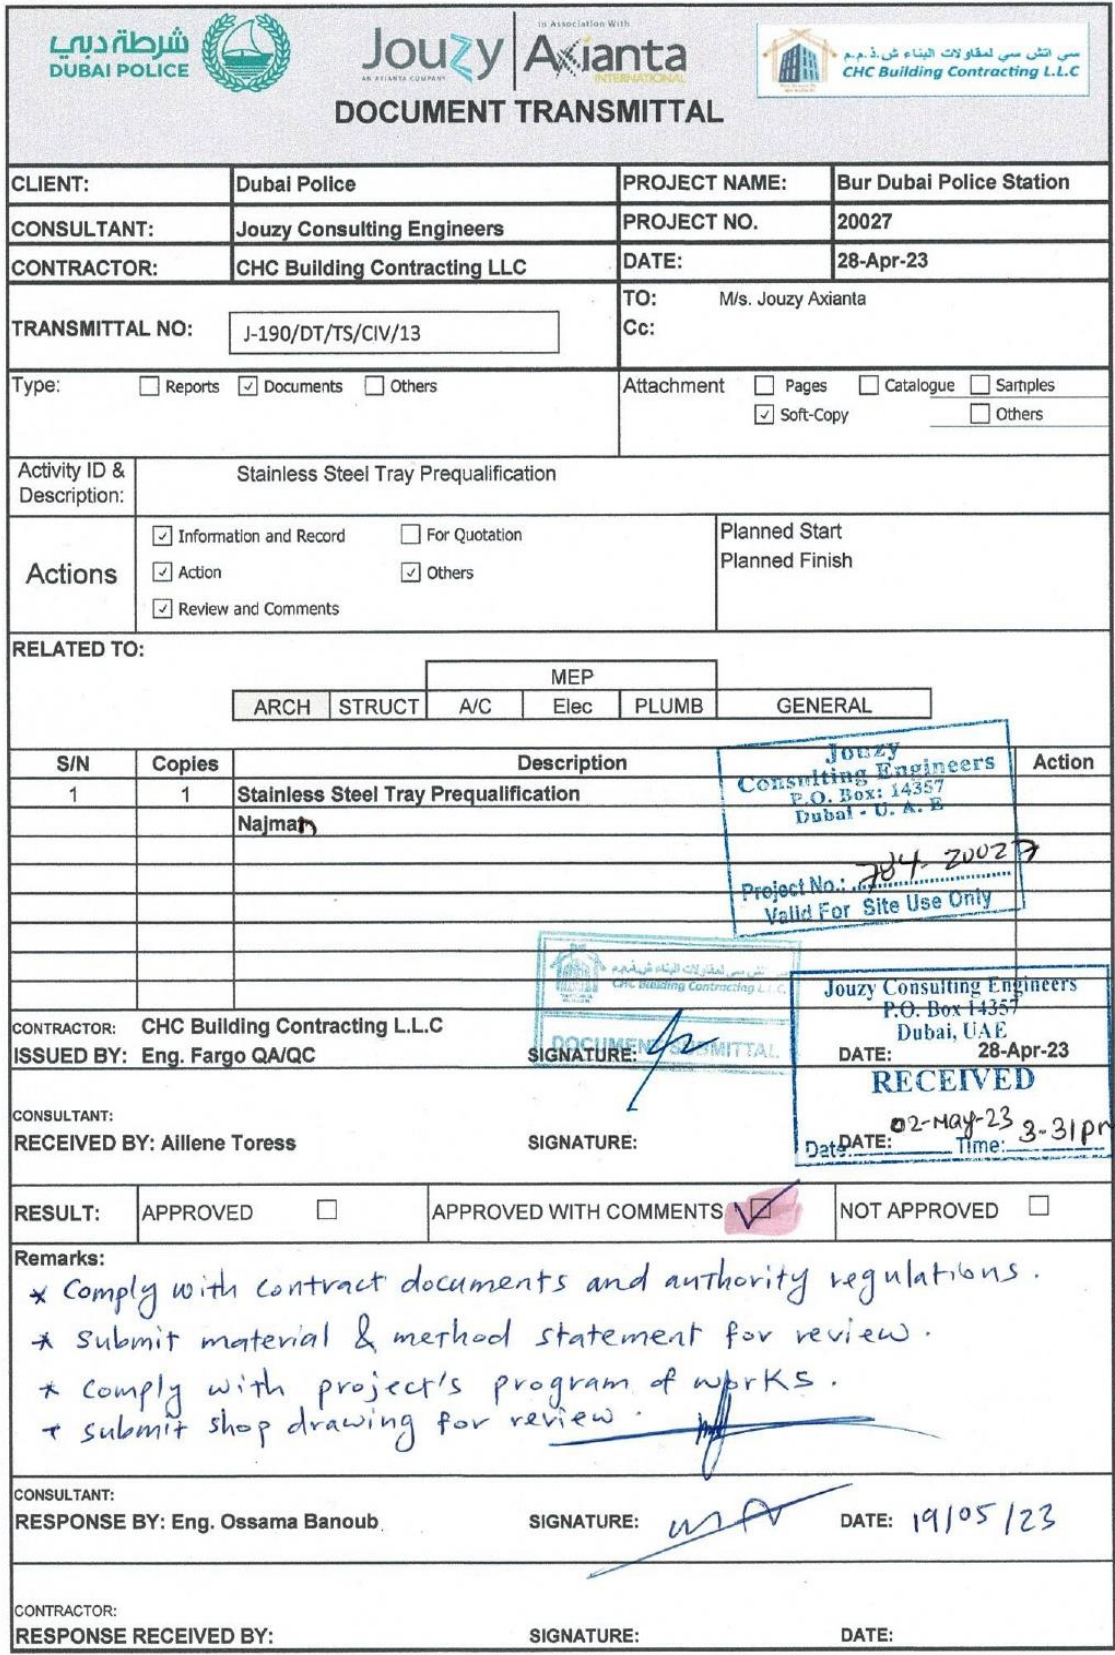 شرطة دبي
DUBAI POLICE
in Association With
Jouzy Axianta
AN AXIANTA COMPANY
INTERNATIONAL
سي اتش سي لمقاولات البناء ش.ذ.م.م
CHC Building Contracting L.L.C
DOCUMENT TRANSMITTAL
CLIENT: Dubai Police PROJECT NAME: Bur Dubai Police Station
CONSULTANT: Jouzy Consulting Engineers PROJECT NO. 20027
CONTRACTOR: CHC Building Contracting LLC DATE: 28-Apr-23
TO: M/s. Jouzy Axianta
TRANSMITTAL NO: J-190/DT/TS/CIV/13 Cc:
Type: Reports Documents Others Attachment Pages Catalogue Samples
Soft-Copy Others
Activity ID & Description: Stainless Steel Tray Prequalification
Actions
Information and Record For Quotation Planned Start
Action Others Planned Finish
Review and Comments
RELATED TO:
MEP
ARCH STRUCT A/C Elec PLUMB GENERAL
S/N Copies Description Action
1 1 Stainless Steel Tray Prequalification
Najman
Jouzy
Consulting Engineers
P.O. Box: 14357
Dubai - U. A. E
Project No.: 784-20027
Valid For Site Use Only
CHC Building Contracting L.L.C.
DOCUMENT SUBMITTAL
Jouzy Consulting Engineers
P.O. Box 14357
Dubai, UAE
RECEIVED
Date: 02-May-23 Time: 3-31pm
CONTRACTOR: CHC Building Contracting L.L.C
ISSUED BY: Eng. Fargo QA/QC SIGNATURE: DATE: 28-Apr-23
CONSULTANT:
RECEIVED BY: Aillene Toress SIGNATURE: DATE:
RESULT: APPROVED APPROVED WITH COMMENTS NOT APPROVED
Remarks:
* Comply with contract documents and authority regulations.
* Submit material & method statement for review.
* Comply with project's program of works.
* Submit shop drawing for review.
CONSULTANT:
RESPONSE BY: Eng. Ossama Banoub SIGNATURE: DATE: 19/05/23
CONTRACTOR:
RESPONSE RECEIVED BY: SIGNATURE: DATE: